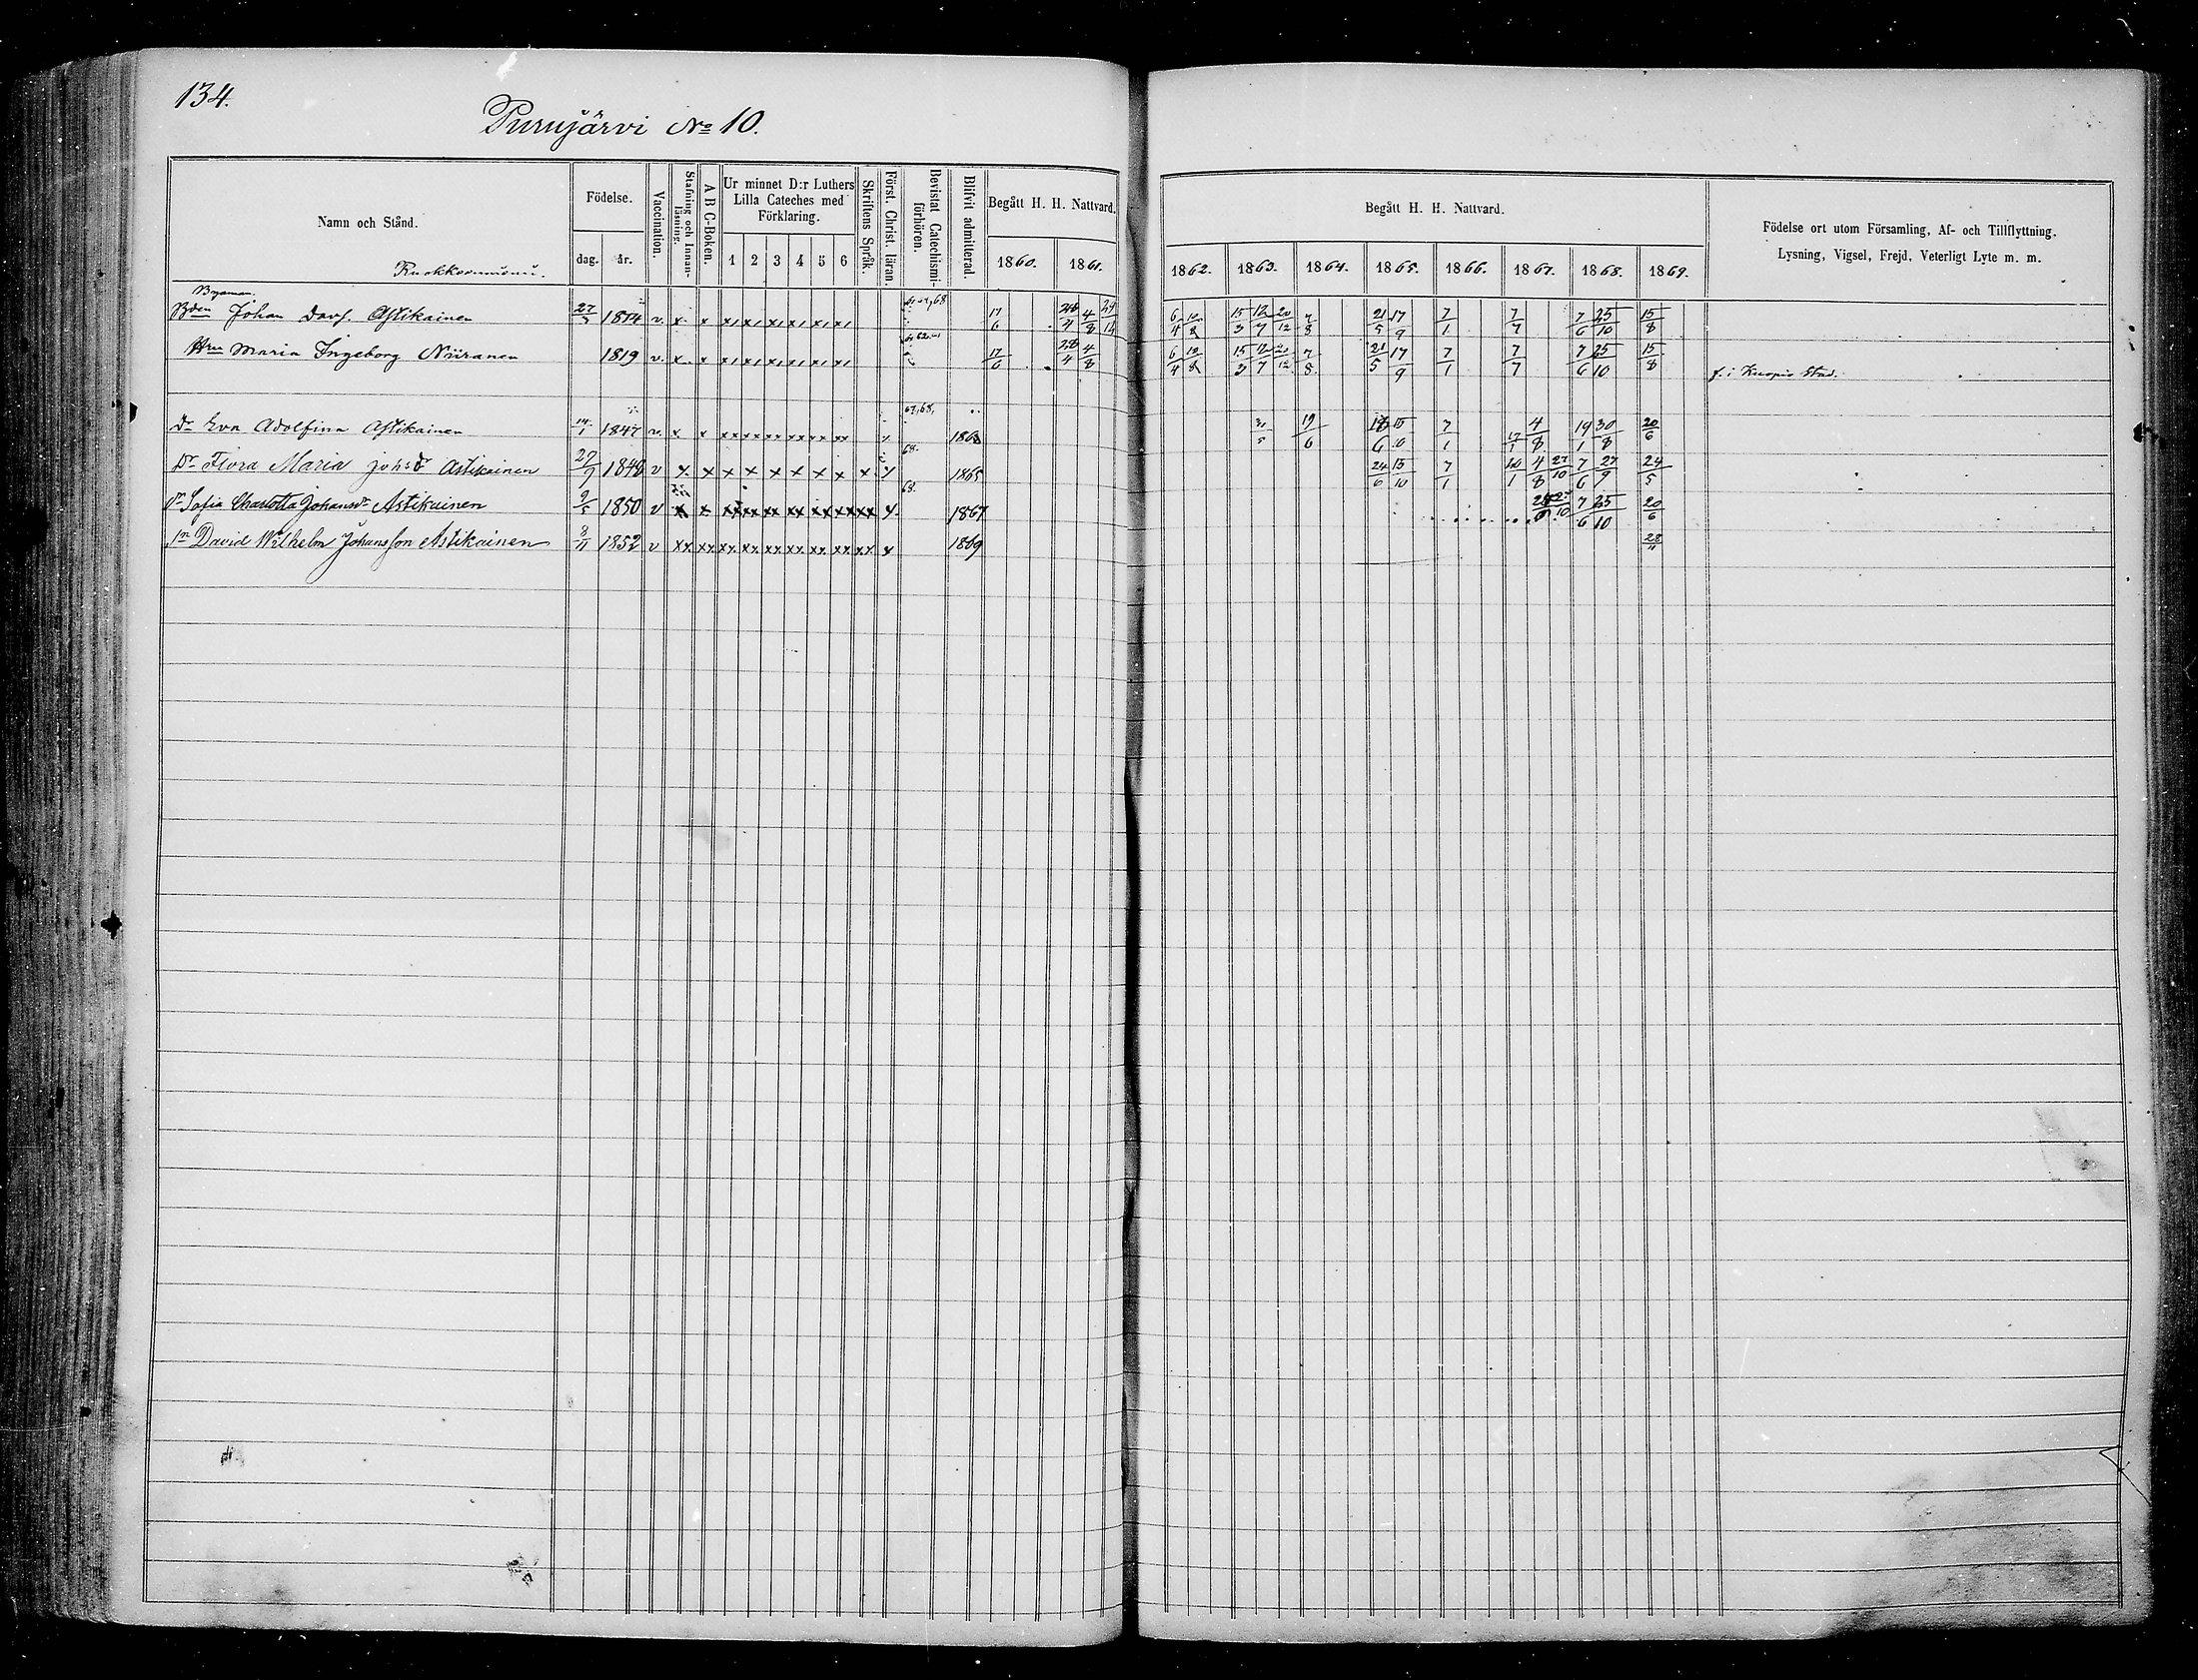 134.
Purujärvi No 10.
Namn och Stånd.
Födelse.
dag.
år.
Vaccination.
Stafning och Innan-läsning.
A B C-Boken.
Ur minnet D:r Luthers
Lilla Cateches med
Förklaring.
1 2 3 4 5 6
Skriftens Språk.
Först. Christ. läran.
Bevistat Catechismi-förhören.
Blifvit admitterad.
Begått H. H. Nattvard.
1860. 1861.
Begått H. H. Nattvard.
1862. 1863. 1864. 1865. 1866. 1867. 1868. 1869.
Födelse ort utom Församling, Af- och Tillflyttning.
Lysning, Vigsel, Frejd, Veterligt Lyte m. m.
Bden Johan Davs. Astikainen 27/5 1814 v. x x 17/6 6/4 10/8 15/3 12/7 20/12 7/8 21/5 17/9 7/1 7/7 7/6 25/10 15/8
Hru Maria Ingeborg Niiranen 1819 v. x x 17/6 28/4 4/8 6/4 10/8 15/3 12/7 20/12 7/8 21/5 17/9 7/1 7/7 7/6 25/10 15/8 f. i Kuopio Stad.
Dr Eva Adolfina Astikainen 14/1 1847 v. x x 67,68, 1863 31/5 19/6 7/1 17/1 4/8 19/1 30/8 20/6
Dr Flora Maria johsdr Astikainen 27/9 1848 v x x x x x x x x x 68. 1865 24/6 15/10 7/1 10/1 4/8 27/10 7/6 27/9 24/5
dr Sofia Charlotta Johansdr Astikainen 9/5 1850 v x x xx xx xx xx xx xx xx 68. 1867 7/6 25/10 20/6
sn David Wilhelm Johansson Astikainen 8/11 1852 v xx xx xx xx xx xx xx xx xx x 1869 28/11